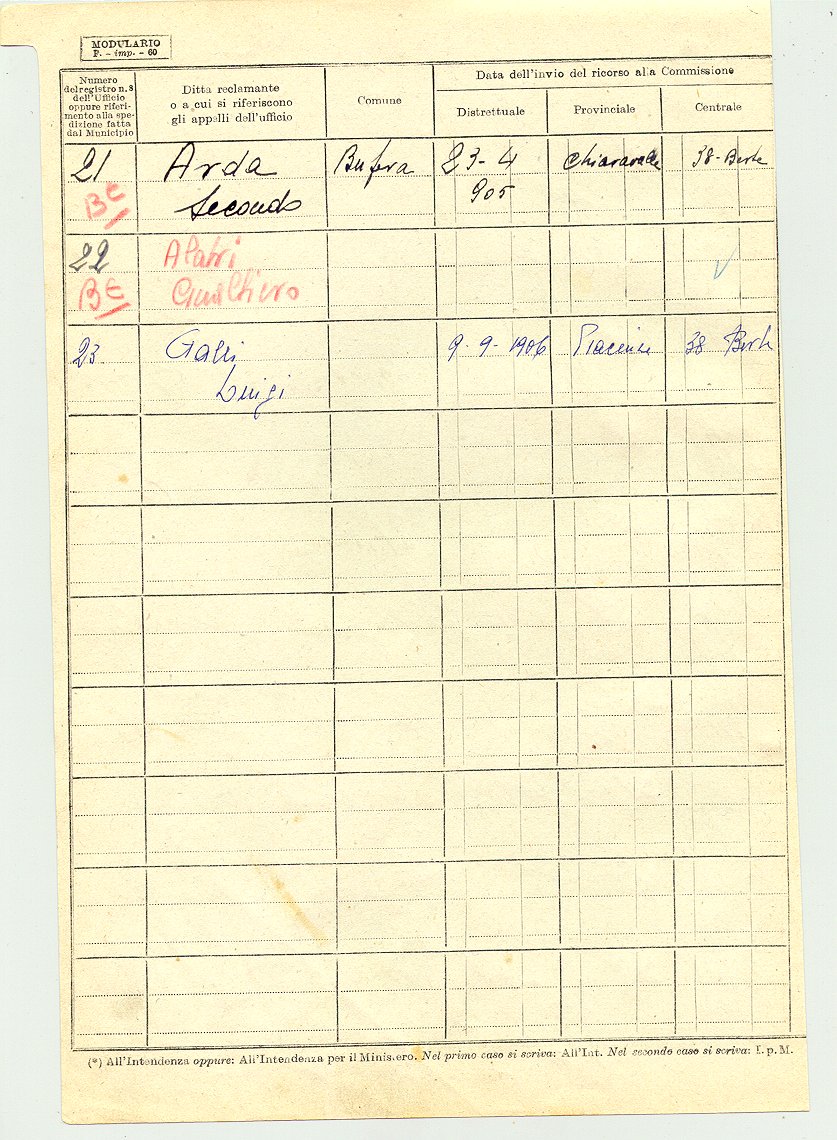 MODULARIO
F. - imp. - 60
Numero
del registro n. 8
dell'Ufficio
oppure riferi-
mento alla spe-
dizione fatta
dal Municipio
Ditta reclamante
o a cui si riferiscono
gli appelli dell'ufficio
Comune
Data dell'invio del ricorso alla Commissione
Distrettuale
Provinciale
Centrale
21 Arda 23-4 Chiaravalle 38-
BE Secondo 905
22 Alatri
BE Gualtiero
23 Galli 9-9-1906 38
Luigi
(*) All'Intendenza oppure: All'Intendenza per il Ministero. Nel primo caso si scriva: All'Int. Nel secondo caso si scriva: I. p. M.